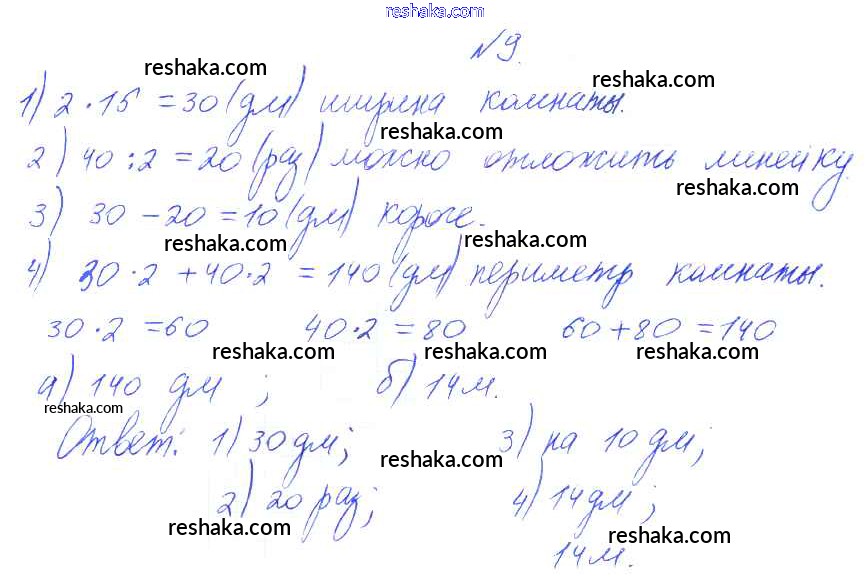 reshaka.com
№9.
reshaka.com
reshaka.com
1) 2 · 15 = 30 (дм) ширина комнаты.
reshaka.com
2) 40 : 2 = 20 (раз) можно отложить линейку.
reshaka.com
3) 30 - 20 = 10 (дм) короче.
reshaka.com reshaka.com
4) 30 · 2 + 40 · 2 = 140 (дм) периметр комнаты.
30 · 2 = 60 40 · 2 = 80 60 + 80 = 140
reshaka.com reshaka.com reshaka.com
а) 140 дм ; б) 14 м.
reshaka.com
Ответ: 1) 30 дм; 3) на 10 дм;
reshaka.com
2) 20 раз; 4) 14 дм;
reshaka.com reshaka.com
14 м.